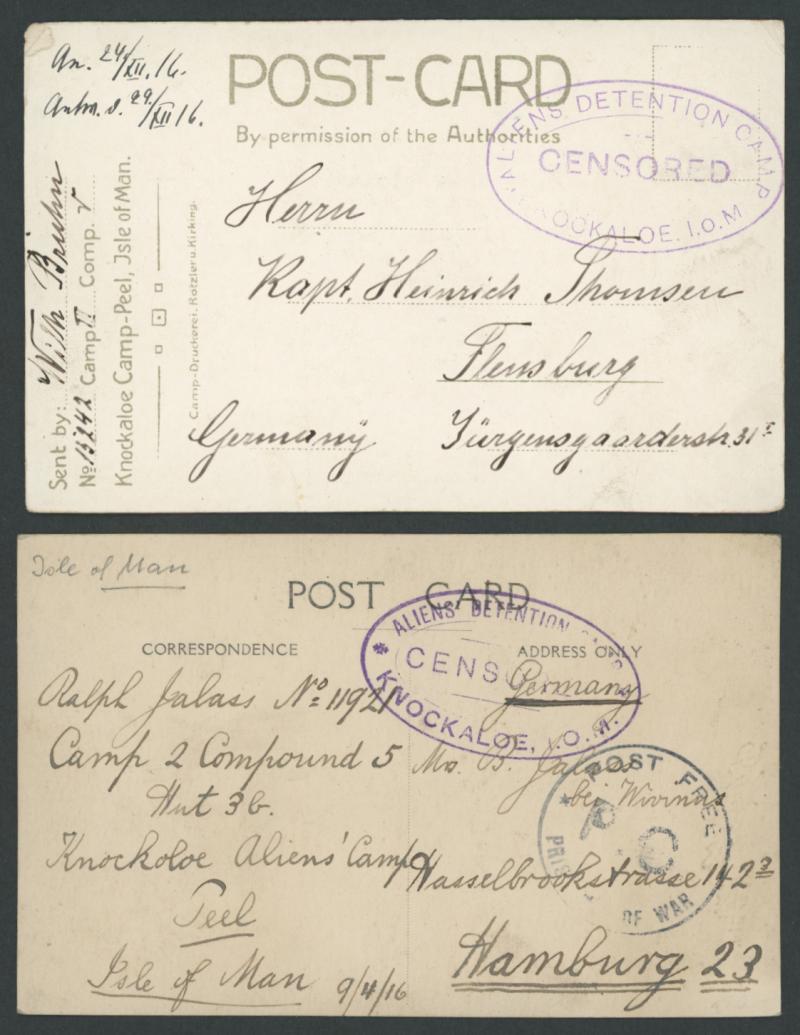 An. 24/XII. 16.
Antw. d. 29/XII 16.
POST-CARD
By permission of the Authorities
ALIENS DETENTION CAMP
CENSORED
KNOCKALOE. I.O.M
Sent by: Wilh Bruhn
No 15242 Camp II Comp. V
Knockaloe Camp-Peel, Isle of Man.
Camp-Druckerei. Rotzler u. Kirking.
Herrn
Kapt. Heinrich Thomsen
Flensburg
Germany. Jürgensgaarderstr. 31 I
Isle of Man
POST CARD
ALIENS' DETENTION
CENS
KNOCKALOE, I.O.M.
CORRESPONDENCE
ADDRESS ONLY
Ralph Jalass No 11921
Camp 2 Compound 5
Hut 3b.
Knockoloe Aliens' Camp
Peel
Isle of Man 9/4/16
Germany
B. Jalass
bei
Hasselbrookstrasse 142
Hamburg 23
POST FREE
P C
PRIS OF WAR